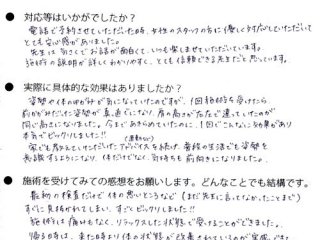 ● 対応等はいかがでしたか？
電話で予約させていただいた時、女性のスタッフの方に優しく対応していただいて
とても安心感がありました。
先生は気さくでお話が面白くて、いつも楽しませていただいています。
施術の説明が詳しくわかりやすく、とても信頼できる先生だと思っています。
● 実際に具体的な効果はありましたか？
姿勢や体のゆがみが気になっていたのですが、1回施術を受けたら
前かがみだった姿勢が真っ直ぐになり、肩の高さが左右で違っていたのが
同じ高さになりました。今まであきらめていたのに、1回でこんなに効果があり
本当にビックリしました!!
家でも教えていただいたアドバイスを続け、普段の生活でも姿勢を
意識するようになり、体だけでなく、気持ちも前向きになりました。
● 施術を受けてみての感想をお願いします。どんなことでも結構です。
最初の検査だけで体の悪いところなど（まだ先生に言ってなかったことまで）
すぐに見抜かれてしまい、すごくビックリしました!!
施術は痛みもなく、リラックスした状態で受けることができました。
帰る時は、来た時より体の状態が改善されているのが実感でき、